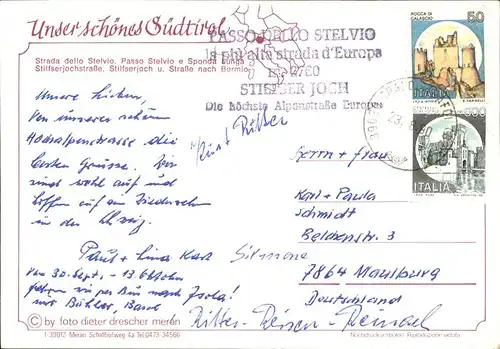 Unser schönes Südtirol
PASSO DELLO STELVIO
la più alta strada d'Europa
m. 2760
STILFSER JOCH
Die höchste Alpenstraße Europas
Strada dello Stelvio, Passo Stelvio e Sponda Lunga
Stilfserjochstraße, Stilfserjoch u. Straße nach Bormio
ROCCA DI
CALASCIO
50
ITALIA
ITALIA
Unsere Lieben,
Von unserer schönen
Hochalpenstrasse die
besten Grüsse. Wir
sind wohl auf und
hoffen auf ein Wiedersehn
in der
Kurt Ritter
Paul + Lina Karl Simone
Von 30. Sept. - 13. Oktober
fahren wir per Bus nach
mit Bühler, Basel
Ritter-Reisen-
Herrn + Frau
Karl + Paula
Schmidt
Belchenstr. 3
7864 Maulburg
Deutschland
© by foto dieter drescher meran
I-39012 Meran Schaffelweg 4a Tel.0473-34566
Nachdruck verboten Riproduzione vietata